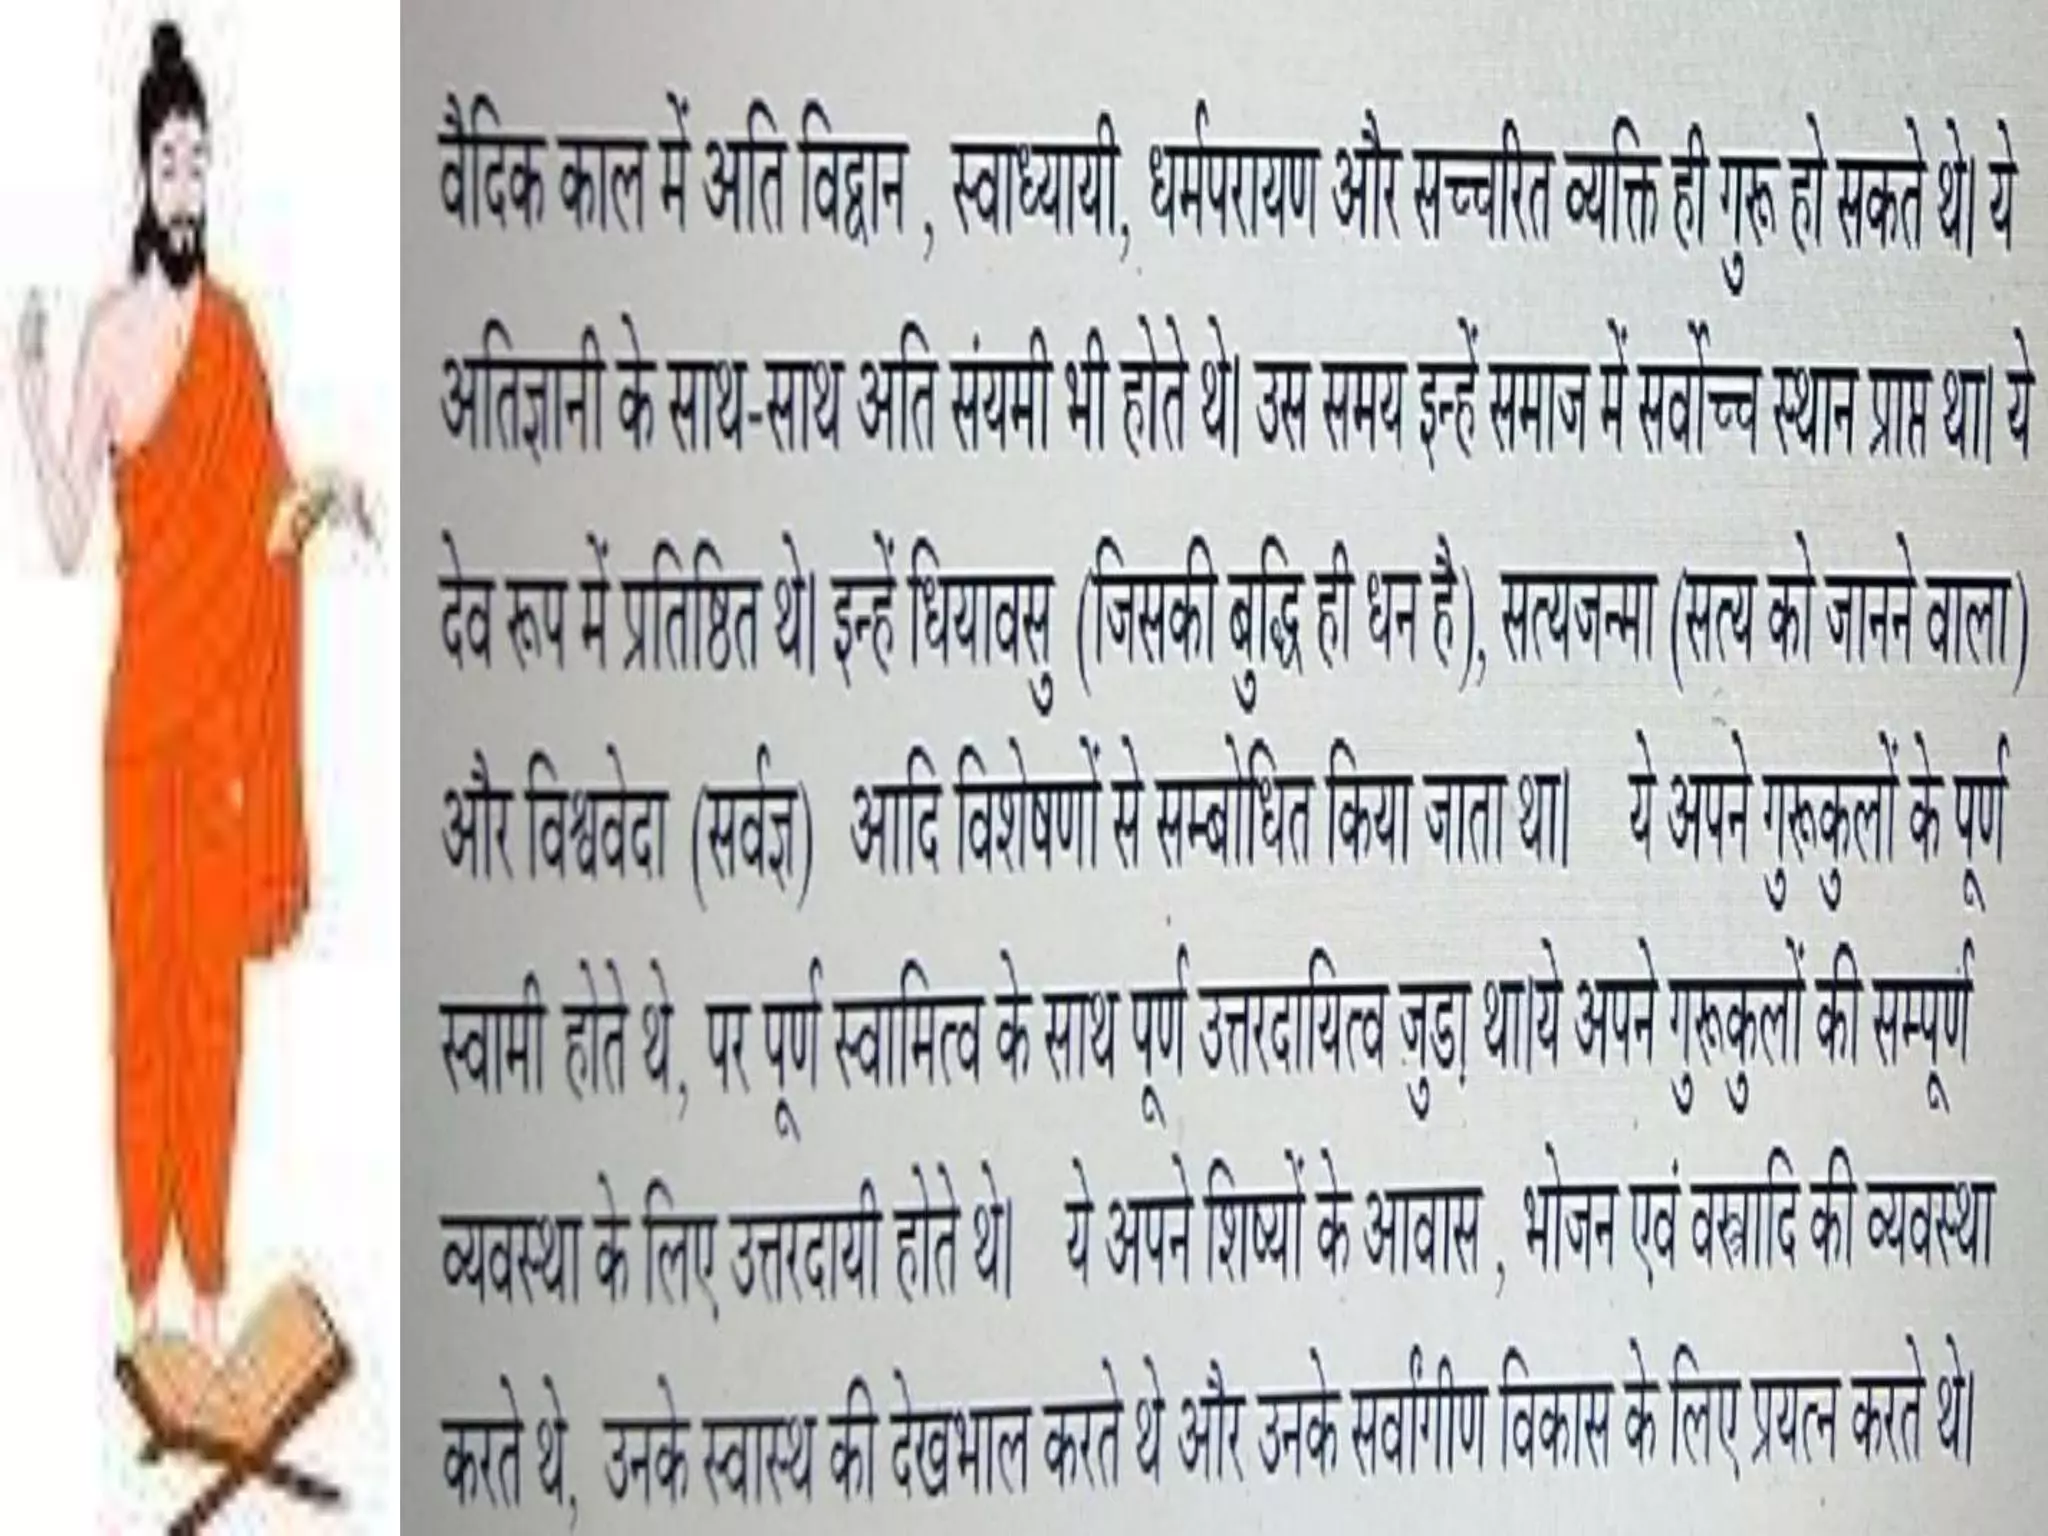 वैदिक काल में अति विद्वान , स्वाध्यायी, धर्मपरायण और सच्चरित व्यक्ति ही गुरू हो सकते थे। ये
अतिज्ञानी के साथ-साथ अति संयमी भी होते थे। उस समय इन्हें समाज में सर्वोच्च स्थान प्राप्त था। ये
देव रूप में प्रतिष्ठित थे। इन्हें धियावसु (जिसकी बुद्धि ही धन है), सत्यजन्मा (सत्य को जानने वाला)
और विश्ववेदा (सर्वज्ञ) आदि विशेषणों से सम्बोधित किया जाता था। ये अपने गुरूकुलों के पूर्ण
स्वामी होते थे, पर पूर्ण स्वामित्व के साथ पूर्ण उत्तरदायित्व जुडा़ था।ये अपने गुरूकुलों की सम्पूर्ण
व्यवस्था के लिए उत्तरदायी होते थे। ये अपने शिष्यों के आवास , भोजन एवं वस्त्रादि की व्यवस्था
करते थे, उनके स्वास्थ की देखभाल करते थे और उनके सर्वांगीण विकास के लिए प्रयत्न करते थे।